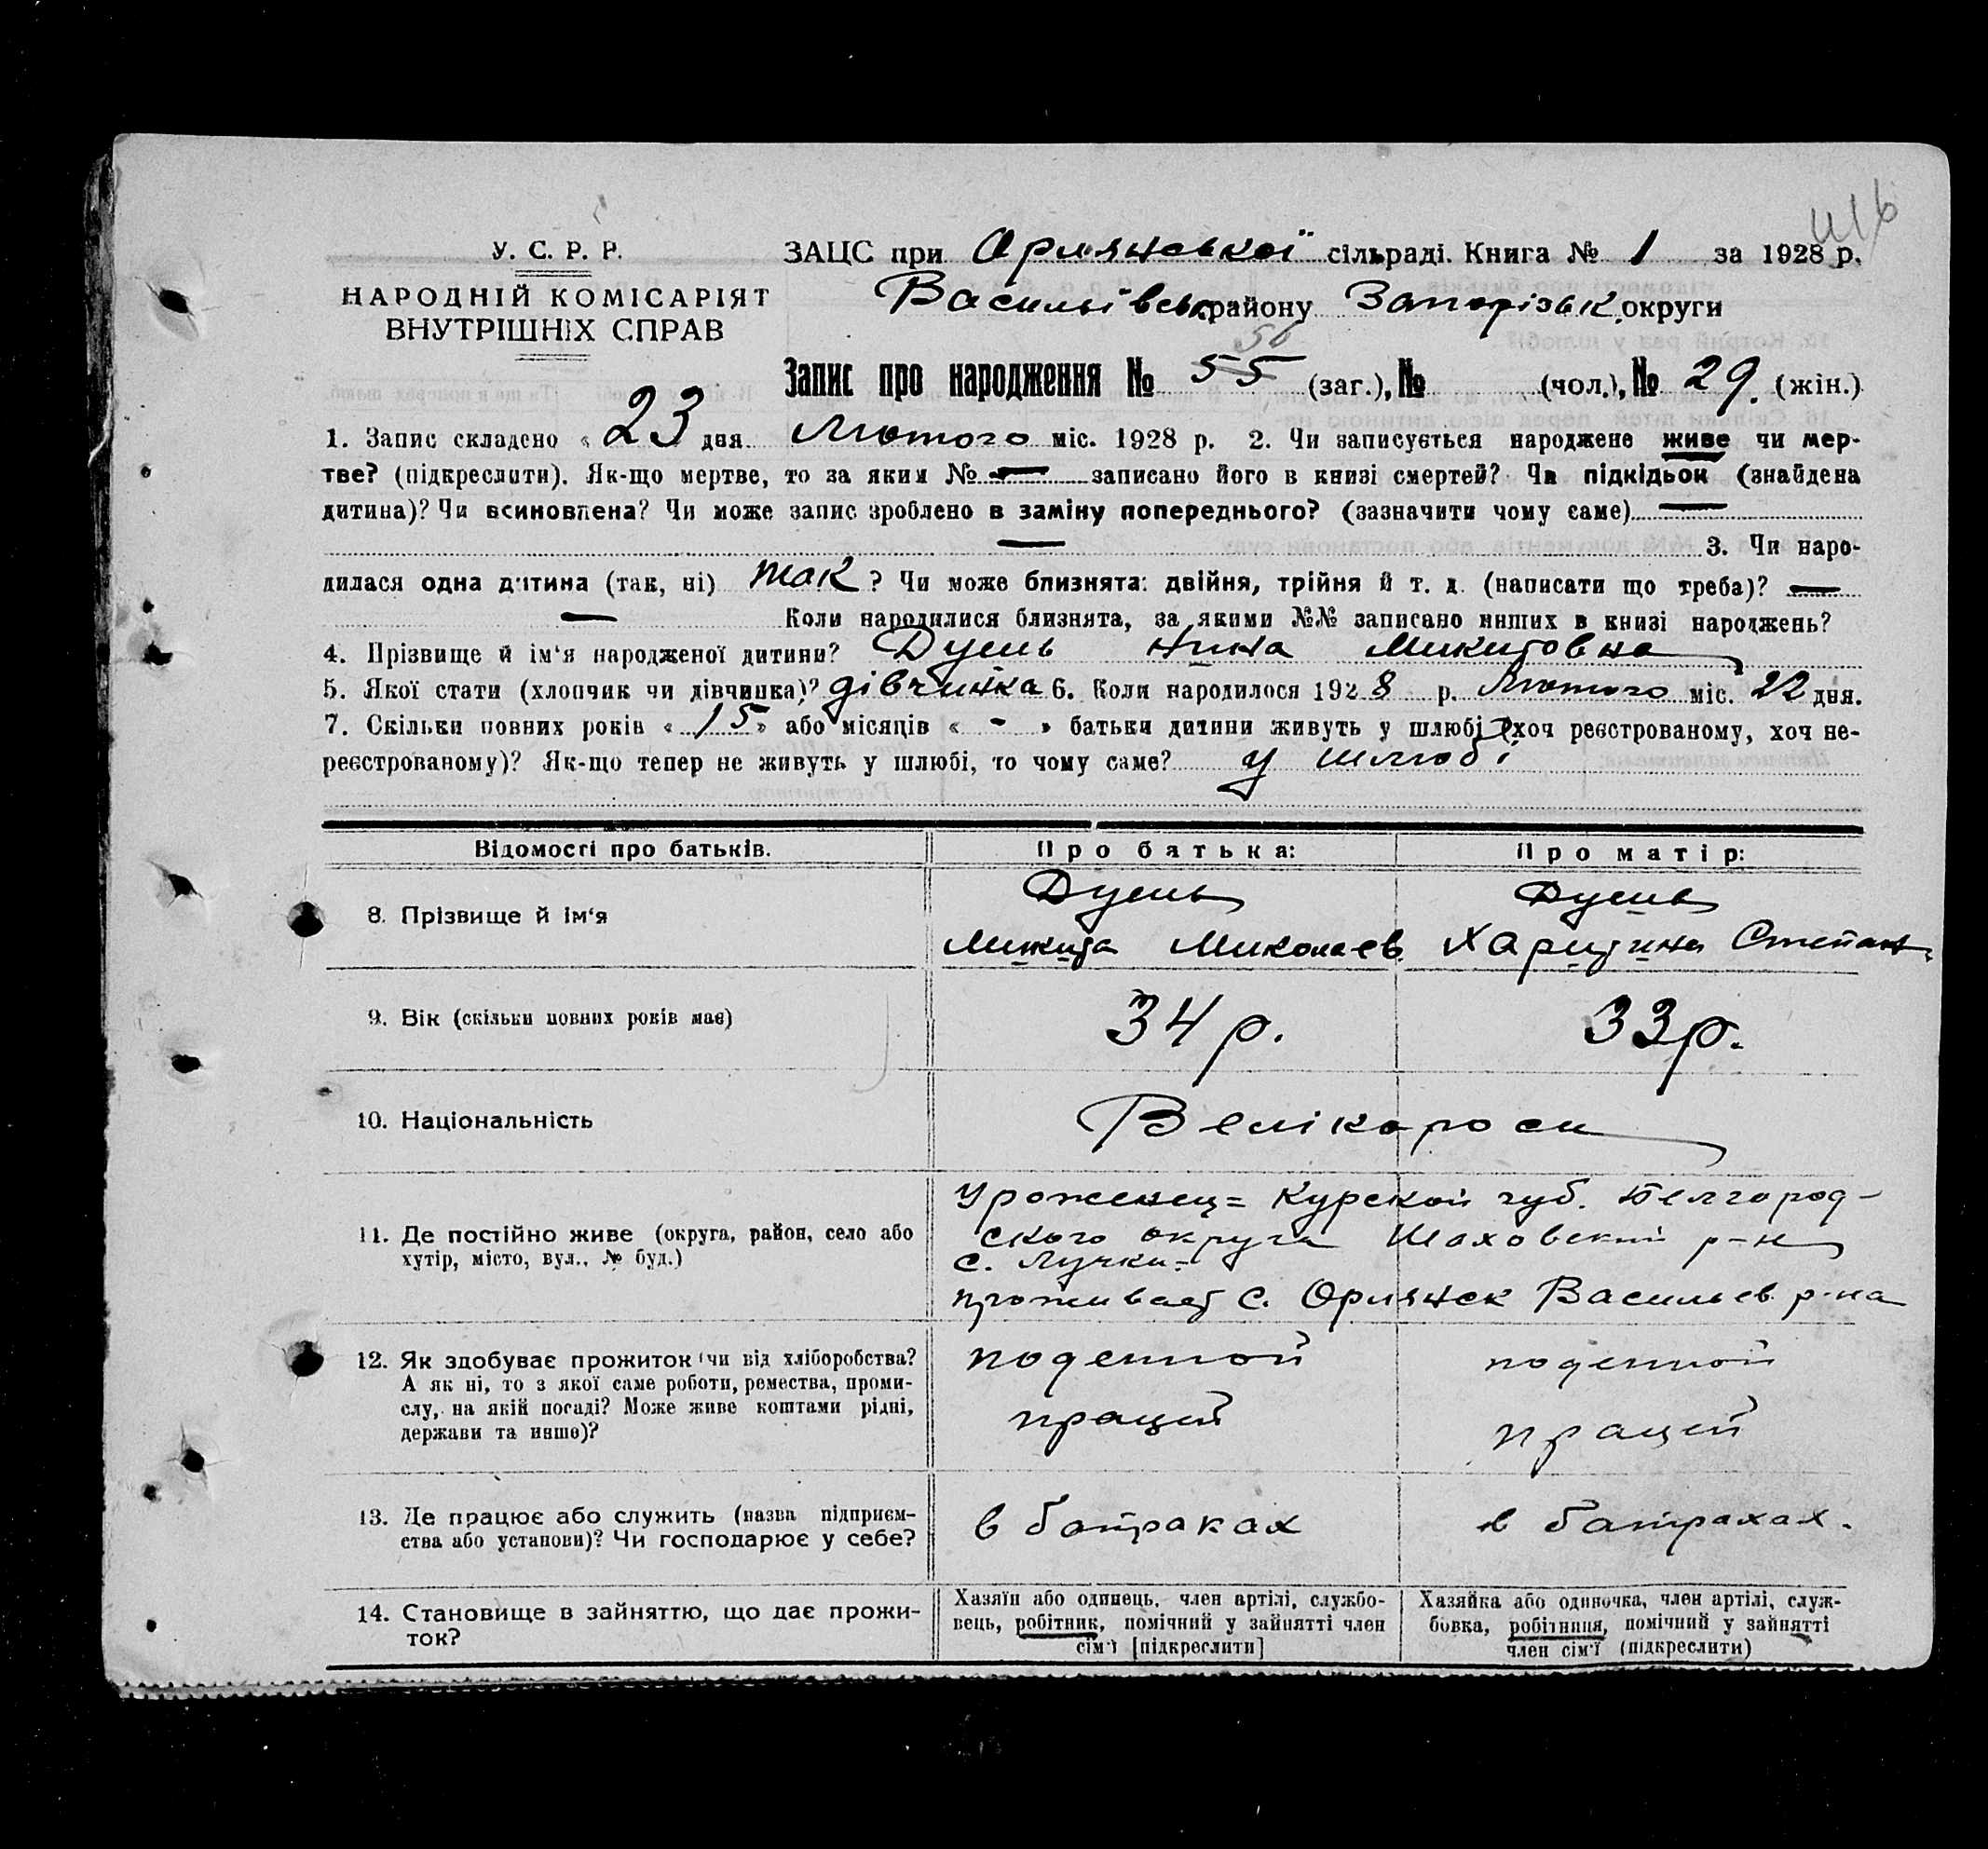 416
У. С. Р. Р.
НАРОДНІЙ КОМІСАРІЯТ
ВНУТРІШНІХ СПРАВ
ЗАЦС при Орлянської сільраді. Книга № 1 за 1928 р.
Васильівськ району Запорізьк. округи
56
Запис про народження № 55 (заг.), № (чол.), № 29. (жін.)
1. Запис складено « 23 дня Лютого міс. 1928 р. 2. Чи записується народжене живе чи мер-
тве? (підкреслити). Як-що мертве, то за яким № — записано його в книзі смертей? Чи підкідьок (знайдена
дитина)? Чи всиновлена? Чи може запис зроблено в заміну попереднього? (зазначити чому саме) —
— 3. Чи наро-
дилася одна дитина (так, ні) так ? Чи може близнята: двійня, трійня й т. д. (написати що треба)? —
— Коли народилися близнята, за якими №№ записано инших в книзі народжень?
4. Прізвище й ім‘я народженої дитини? Нина Микитовна
5. Якої стати (хлопчик чи дівчинка)? дівчинка 6. Коли народилося 1928 р. Лютого міс. 22 дня.
7. Скільки повних років « 15 » або місяців « - » батьки дитини живуть у шлюбі (хоч реєстрованому, хоч не-
реєстрованому)? Як-що тепер не живуть у шлюбі, то чому саме? у шлюбі
Відомості про батьків.
Про батька:
Про матір:
8. Прізвище й ім‘я
Микита Миколаев.
Харитина Степан.
9. Вік (скільки повних років має)
34 р.
33 р.
10. Національність
Велікороси
11. Де постійно живе (округа, район, село або
хутір, місто, вул., № буд.)
Уроженец= Курской губ. Белгород-
ского округа Шаховский р-н
с. Лучки=
проживает с. Орлянск Васильев. р-на
12. Як здобуває прожиток чи від хліборобства?
А як ні, то з якої саме роботи, ремества, проми-
слу, на якій посаді? Може живе коштами рідні,
держави та инше)?
поденной
працей
поденной
працей
13. Де працює або служить (назва підприєм-
ства або установи)? Чи господарює у себе?
в батраках
в батраках.
14. Становище в зайняттю, що дає прожи-
ток?
Хазяїн або одинець, член артілі, службо-
вець, робітник, помічний у зайнятті член
сім‘ї [підкреслити]
Хазяйка або одиночка, член артілі, служ-
бовка, робітниця, помічний у зайнятті
член сім‘ї (підкреслити)